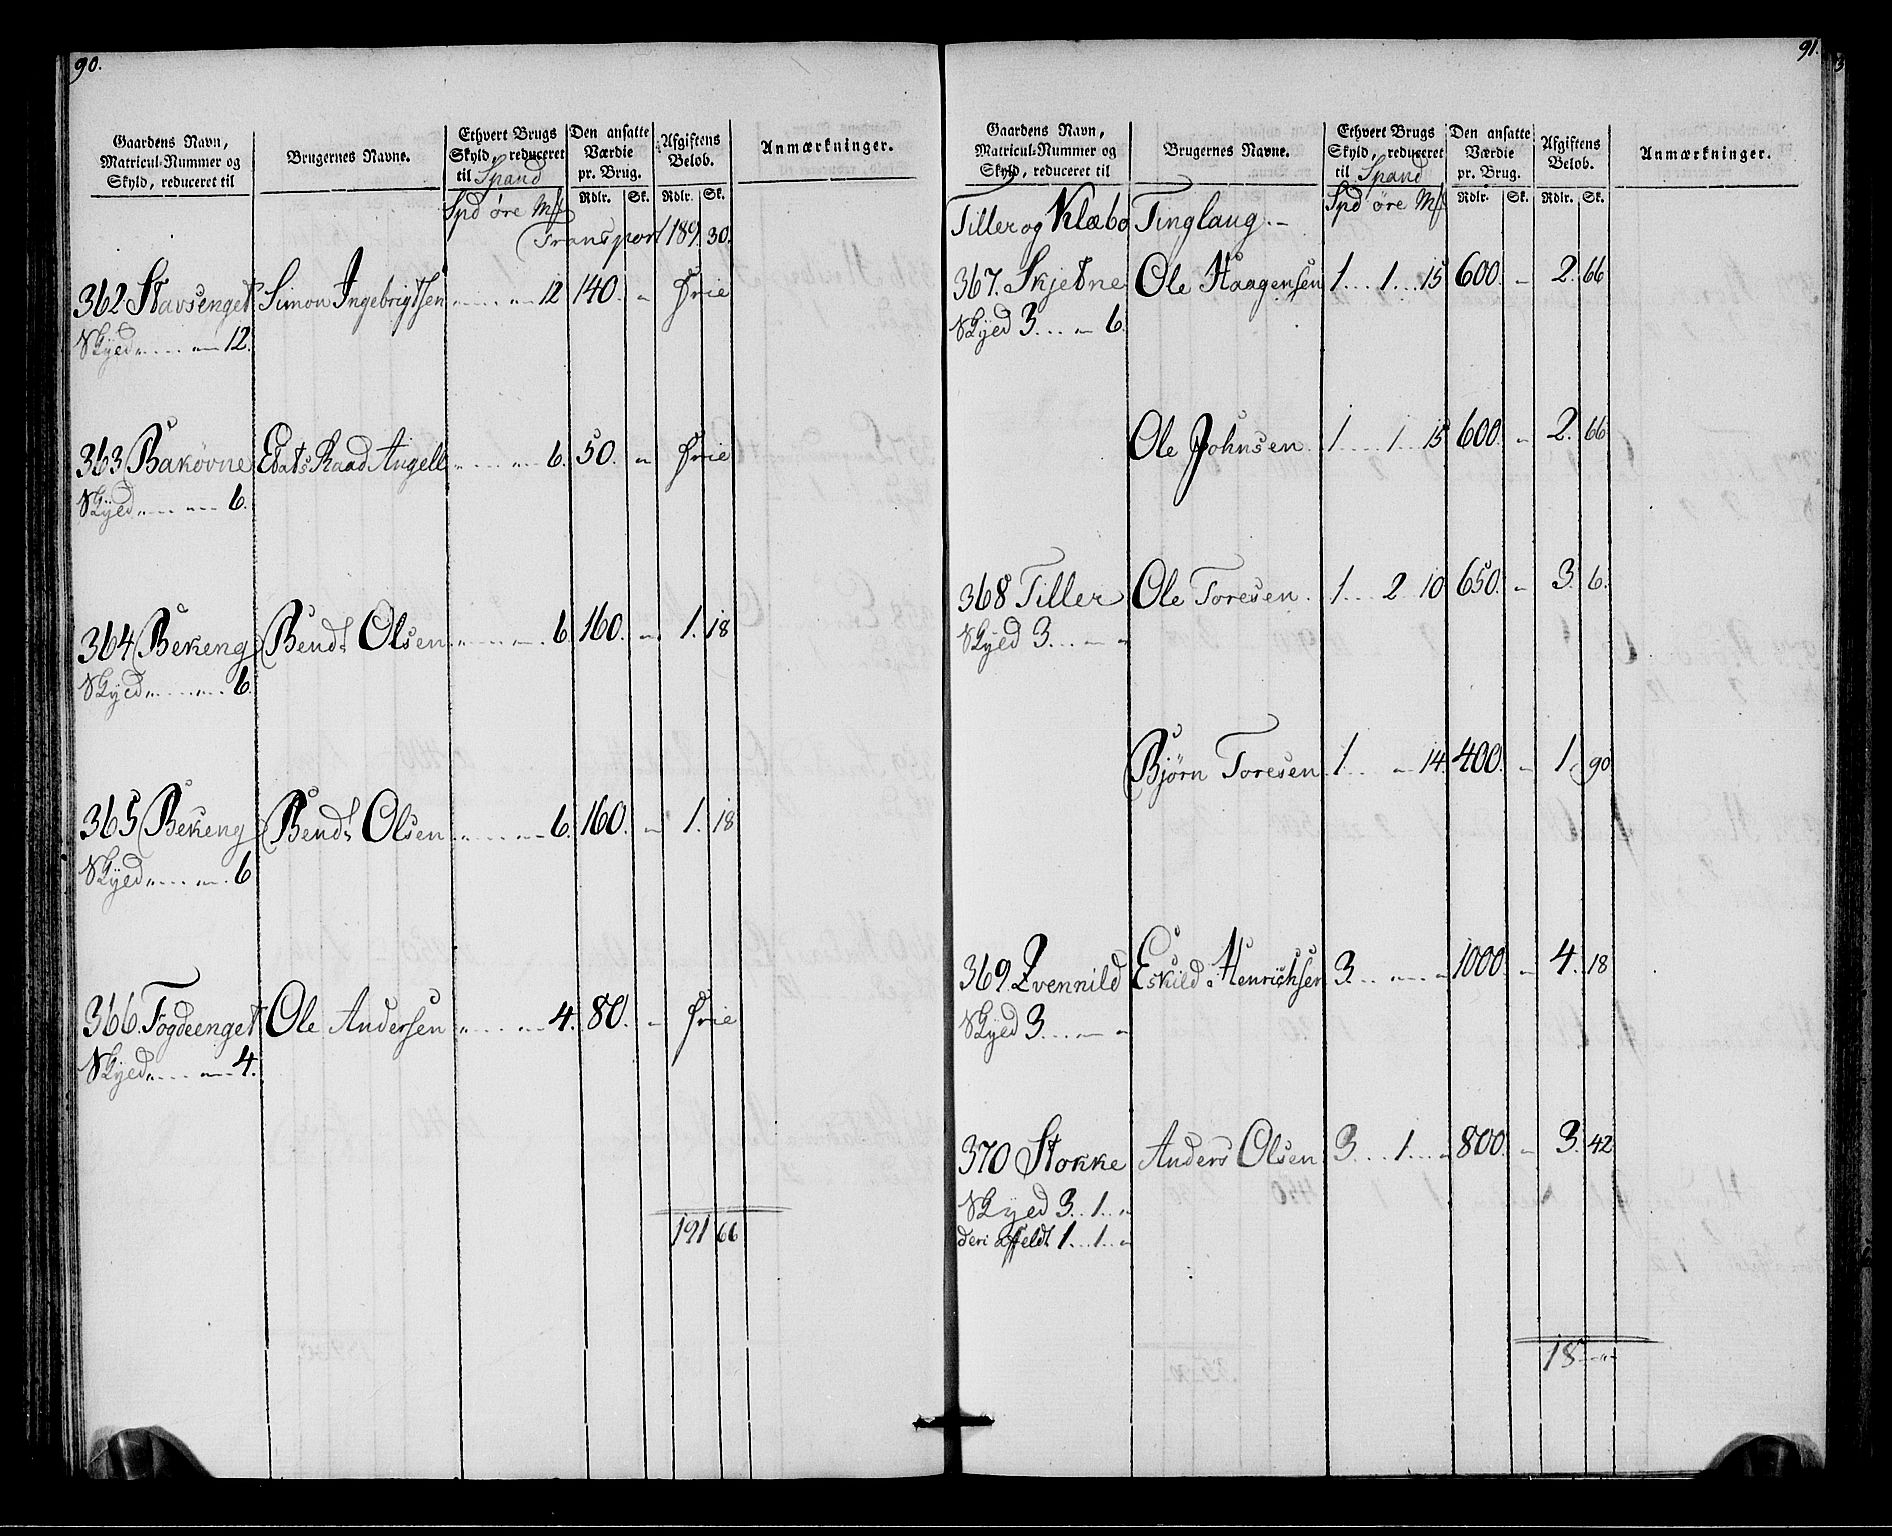 90.
Gaardens Navn, Matricul-Nummer og Skyld, reduceret til | Brugernes Navne. | Ethvert Brugs Skyld, reduceret til Spand | Den ansatte Værdie pr. Brug. | Afgiftens Beløb. | Anmærkninger.
Spd øre Mk | Rdlr. | Sk. | Rdlr. | Sk.
Transport 189 30.
362 Stavsenget Simon Ingebrigtsen " " 12 140. " Frie
Skyed " " 12.
363 Bakovne Etats Raad Angell " " 6. 50. " Frie
Skyed " " 6.
364 Bekeng Bendt Olsen " " 6 160. " 1. 18
Skyed " " 6.
365 Bekeng Bendt Olsen " " 6. 160. " 1. 18
Skyed " " 6
366. Fogdeenget Ole Andersen " " 4. 80. " Frie
Skyed " " 4.
191 66
91.
Gaardens Navn, Matricul-Nummer og Skyld, reduceret til | Brugernes Navne. | Ethvert Brugs Skyld, reduceret til Spand | Den ansatte Værdie pr. Brug. | Afgiftens Beløb. | Anmærkninger.
Spd øre Mk | Rdlr. | Sk. | Rdlr. | Sk.
Tiller og Klæbo Tinglaug.-
367. Skjetne Ole Haagensen 1 1 15 600. " 2. 66
Skyed 3 " 6.
Ole Johnsen 1 1 15 600. " 2. 66
368 Tiller Ole Toresen. 1 2 10 650. " 3. 6.
Skyed 3 " "
Bjørn Toresen 1 " 14. 400. " 1. 90
369 Qvennild Eskild Henrichsen 3 " " 1000. " 4. 18
Skyed 3 " "
370 Stokke Anders Olsen 3 1 " 800. " 3. 42
Skyed 3 1 "
deri affeldt 1 1 "
18 "